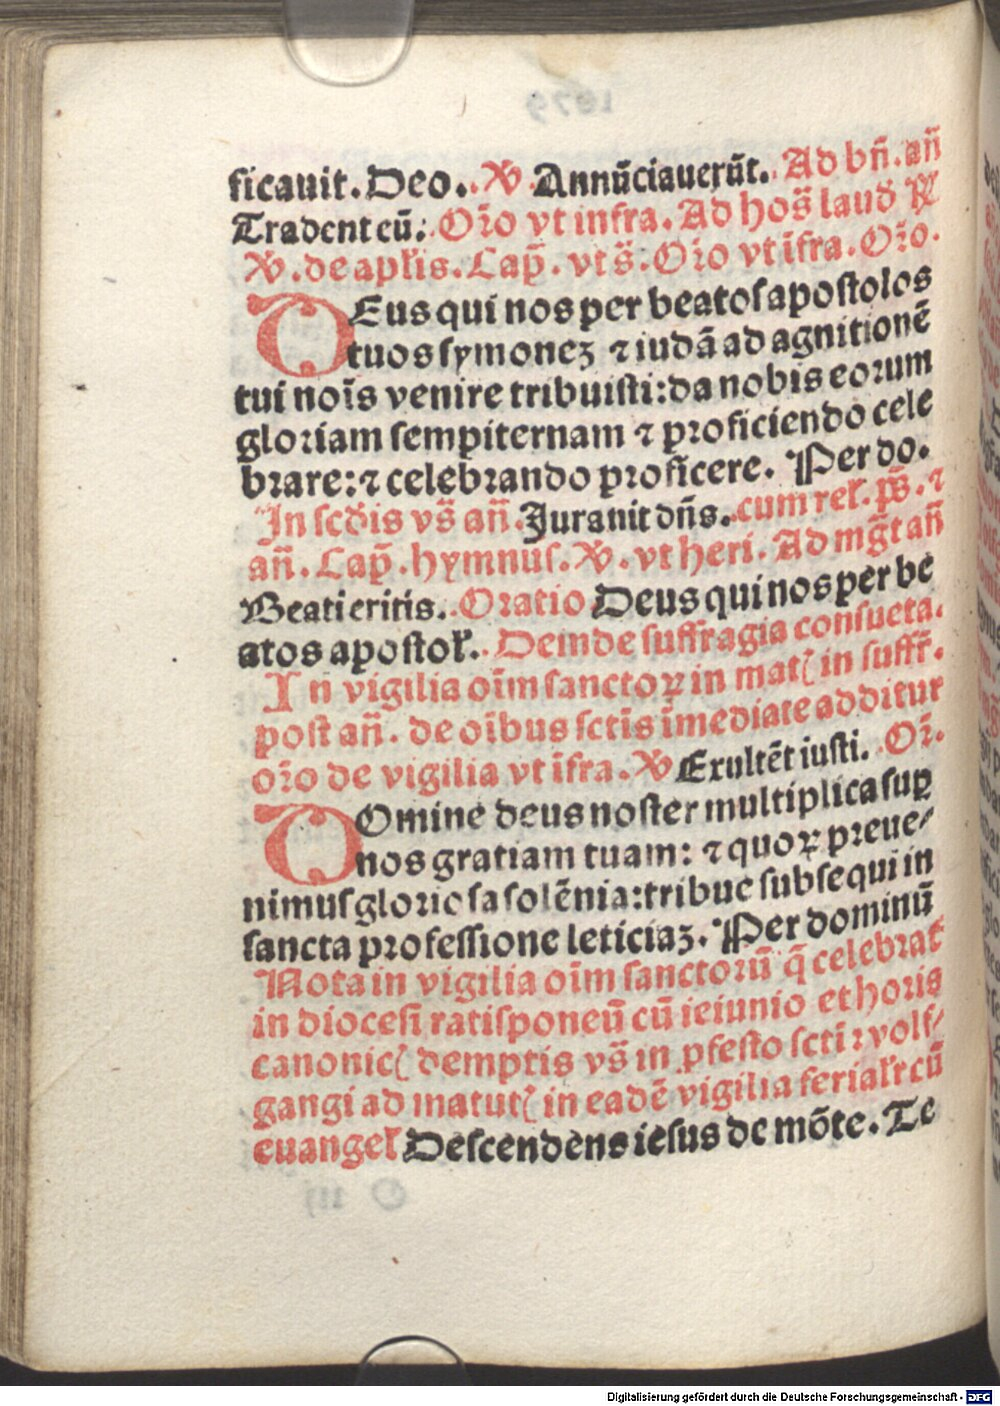 ficauit. Deo. ℣. Annũciauerũt. Ad bñ. añ
Tradent eũ: Oŕo vt infra. Ad hoŝ laud̄ ℟
℣. de apƚis. Cap̄. vt s̄: Oro vt ĩfra. Oŕo.
DEus qui nos per beatos apostolos
tuos symonez ⁊ iudã ad agnitionẽ
tui nois̄ venire tribuisti: da nobis eorum
gloriam sempiternam ⁊ proficiendo cele
brare: ⁊ celebrando proficere. Per do.
In scd̄is vs̄ añ. Jurauit dñs. cum rel̄. ps̄. ⁊
añ. Cap̄. hymnus. ℣. vt heri. Ad mḡt añ
Beati eritis. Oratio Deus qui nos per be
atos apostol̄. Deinde suffragia consueta.
In vigilia oĩm sanctoꝝ in matꝭ in suffr̄.
post añ. de oĩbus sctĩs ĩmediate additur
oŕo de vigilia vt ĩfra. ℣ Exultẽt iusti. Or̄.
DOmine deus noster multiplica suꝑ
nos gratiam tuam: ⁊ quoꝝ preue⸗
nimus gloriosa solẽnia: tribue subsequi in
sancta professione leticiaz. Per dominũ
Nota in vigilia oĩm sanctorũ q̃ celebrat̄
in diocesi ratisponeñ cũ ieiunio et horis
canonicꝭ demptis vs̄ in ꝓfesto sctĩ ⁊ volf⸗
gangi ad matutꝭ in eadẽ vigilia ferial̄r cũ
euangel̄ Descendens iesus de mõte. Te
Digitalisierung gefördert durch die Deutsche Forschungsgemeinschaft - DFG